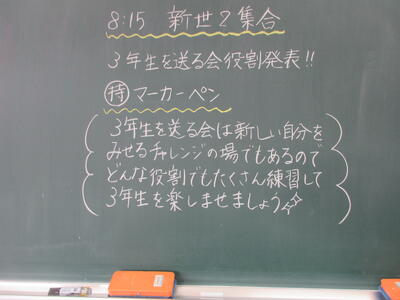 8:15 新世2集合
3年生を送る会役割発表!!
持 マーカーペン
3年生を送る会は新しい自分を
みせるチャレンジの場でもあるので
どんな役割でもたくさん練習して
3年生を楽しませましょう